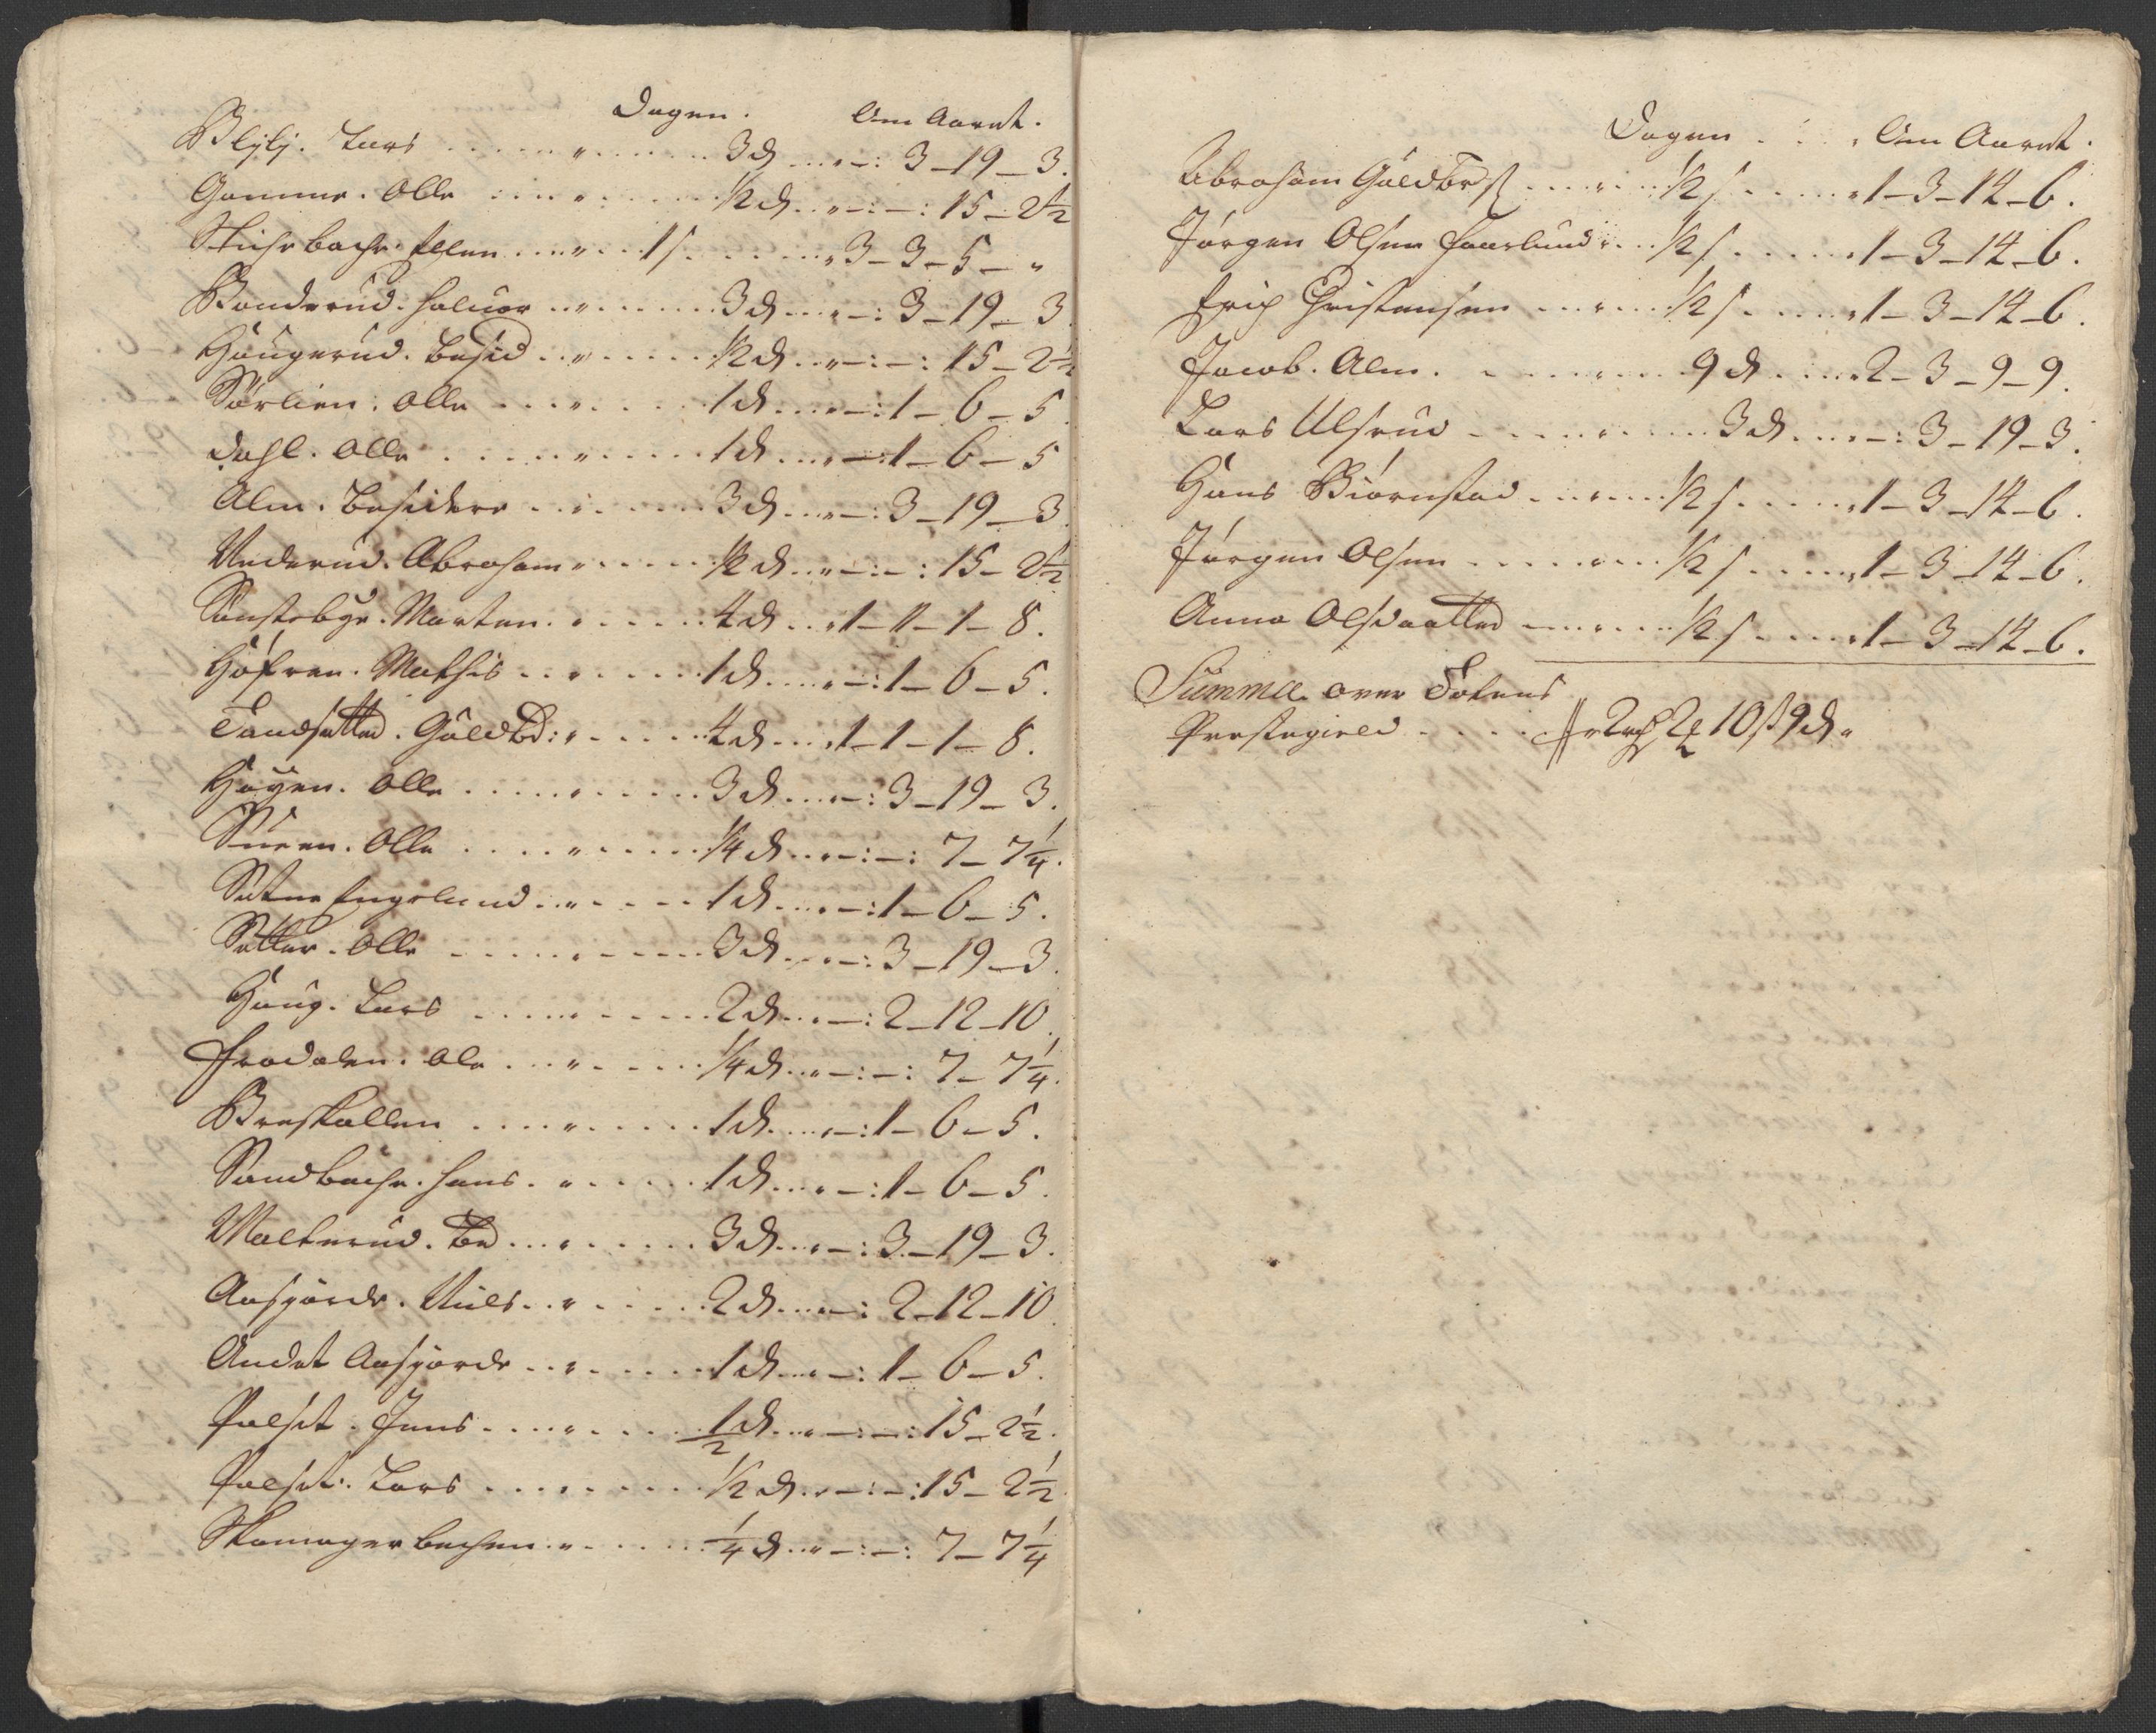 Dagen. Om Aaret.
Blilj. Lars . . . . . . " . . . . . . 3 d . . . " – : 3 – 19 – 3.
Gamme. Olle . . . . " . . . . . ½ d . . " – : – : 15 – 2½
Stichsbachr. Ellen . . . " . . . 1 s . . . . . . " 3 – 3 – 5 – "
Bonderud. Haluor . . " . . . . . . 3 d . . . " – : 3 – 19 – 3
Haugerud. Besid . . " . . . . . ½ d . . " – : – : 15 – 2½
Sörlien. Olle . . . . " . . . . . 1 d . . . " – : 1 – 6 – 5
Dahl. Olle . . . . . . " . . . . . 1 d . . . " – : 1 – 6 – 5
Alm. Besidere . . . " . . . . . 3 d . . . " – : 3 – 19 – 3.
Nederud. Abraham " . . . . . ½ d . . " – : – : 15 – 2½
Sönstebye. Morten . " . . . . . 4 d . . . " 1 – 1 – 1 – 8.
Höfren. Mathis . . " . . . . . 1 d . . . . " – : 1 – 6 – 5.
Tandsetted. Guldbd : " . . . . . 4 d . . . " 1 – 1 – 1 – 8.
Höyen. Olle . . . . . " . . . . . 3 d . . . " – : 3 – 19 – 3.
Sueen. Olle . . . . . " . . . . . ¼ d . . " – : – : 7 – 7¼.
Sætne Engelund . . " . . . . . 1 d . . . " – : 1 – 6 – 5.
Setter. Olle . . . . . " . . . . . 3 d . . . " – : 3 – 19 – 3.
Haug. Lars . . . . . " . . . . . 2 d . . . " – : 2 – 12 – 10.
Frodalen. Ole . . . " . . . . . ¼ d . . " – : – : 7 – 7¼.
Breskallen . . . . . " . . . . . 1 d . . . " – : 1 – 6 – 5.
Sandbachr. Hans . " . . . . . 1 d . . . " – : 1 – 6 – 5.
Malterud. Bd . . . " . . . . . 3 d . . . " – : 3 – 19 – 3.
Aasgiorde. Niels . . " . . . . . 2 d . . . " – : 2 – 12 – 10.
Andet Aasgiorde . . " . . . . . 1 d . . . " – : 1 – 6 – 5.
Palset. Jens . . . . " . . . . . ½ d . . " – : – : 15 – 2½.
Palset. Lars . . . . " . . . . . ½ d . . " – : – : 15 – 2½
Skomagerbechen . " . . . . . ¼ d . . " – : – : 7 – 7¼
Dagen . . . . Om Aaret.
Abraham Guldbrs . . . . " . . ½ s . . . . . " 1 – 3 – 14 – 6.
Jörgen Olsen Faarlund " . . ½ s . . . . . " 1 – 3 – 14 – 6.
Erich Christensen . . . " . . ½ s . . . . . " 1 – 3 – 14 – 6.
Jacob. Alm. . . . . . " . . . 9 d . . . . " 2 – 3 – 9 – 9.
Lars Ulsrud . . . . . " . . . . 3 d . . . " – : 3 – 19 – 3.
Hans Biörnstad . . . " . . ½ s . . . . . " 1 – 3 – 14 – 6.
Jörgen Olsen . . . . . " . . ½ s . . . . . " 1 – 3 – 14 – 6.
Anna Olsdaatted . . . " . . ½ s . . . . . " 1 – 3 – 14 – 6.
Summa over Totens
Prestegield . . . . . 2 10 ß 9 d.